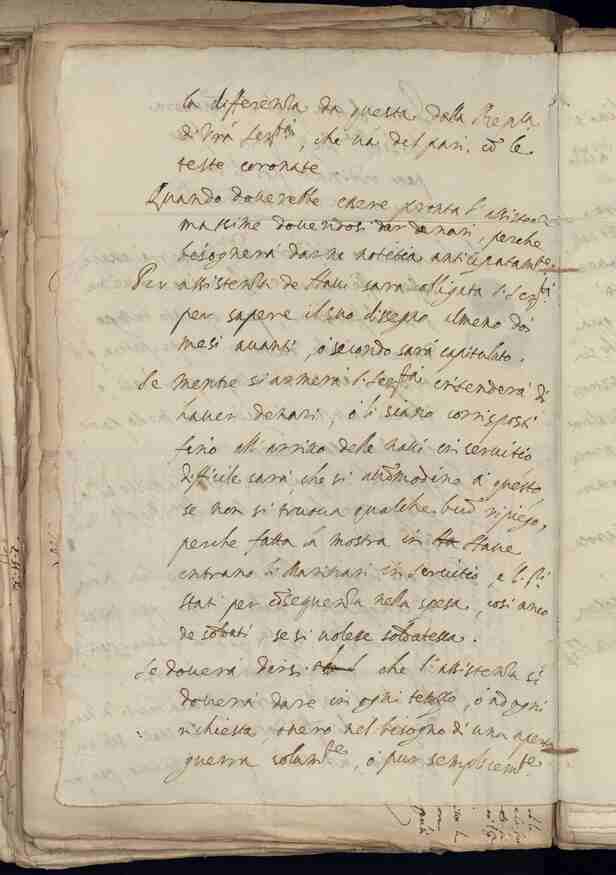 la differenza da questa della Repca
di Vrã Serẽtà, che và del pari cõ le
teste coronate
Quando doverebbe essere pronta l'assistenza
massime dovendosi dar denari, perche
besognerà darne notitia anticipatamte
Per assistenza de Navi sarà obligata S. Sertà
per sapere il suo disegno almeno doi
mesi avanti, ò secondo sarà capitulato.
Se mentre si armerà S. Sertà intenderà di
haver denari, ò li siano corrisposti
fino all'arrivo delle navi in servitio
difficile sarà, che si accõmodino à questo
se non si truova qualche buõ ripiego,
perche fatta la mostra in Nave
entrano li Marinari in servitio, e li Sti
Stati per cõseguenza nella spesa, cosi anco
de soldati, se si volese soldatesca.
Se doverà dirsi che l'assistenza si
doverà dare in ogni tempo, ò ad ogni
richiesta, overo nel besogno d'una aperta
guerra solamte, ò pur semplicemte